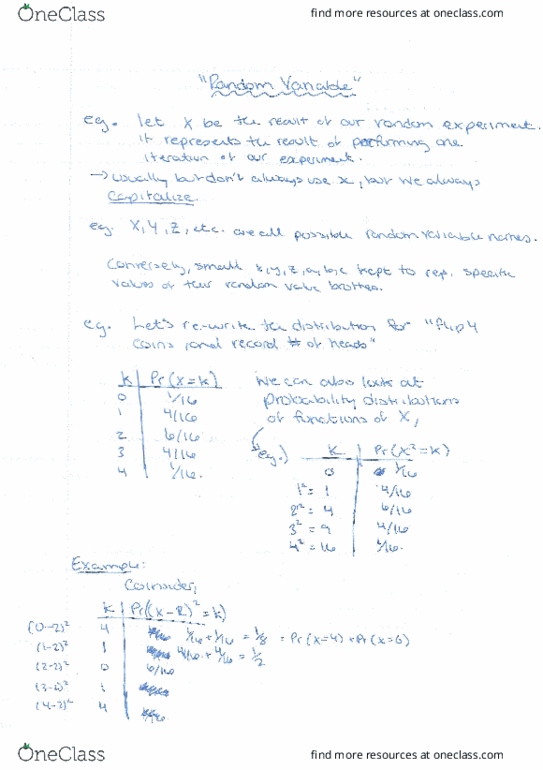 OneClass
find more resources at oneclass.com
"Random Variable"
eg. let X be the result of our random experiment.
it represents the result of performing one
iteration of our experiment.
→ usually but don't always use x, but we always
capitalize.
eg. X, Y, Z, etc. are all possible random variable names.
Conversely, small x, y, z, a, b, c kept to rep. specific
values of their random value brothers.
eg. Let's re-write the distribution for "flip 4
coins, and record # of heads"
K Pr(X=k)
0 1/16
1 4/16
2 6/16
3 4/16
4 1/16.
We can also look at
probability distributions
of functions of X,
eg.) K Pr(X²=k)
0 1/16
1² = 1 4/16
2² = 4 6/16
3² = 9 4/16
4² = 16 1/16.
Example:
Consider,
K Pr((x-2)²=k)
(0-2)² 4 1/16 + 1/16 = 1/8 = Pr(x=4) + Pr(x=0)
(1-2)² 1 4/16 + 4/16 = 1/2
(2-2)² 0 6/16
(3-2)² 1
(4-2)² 4
OneClass
find more resources at oneclass.com